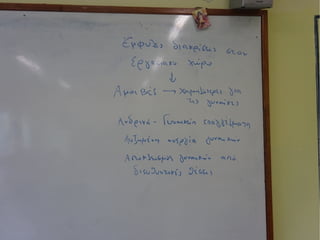 Έμφυλες διακρίσεις στον
εργασιακό χώρο
↓
Αμοιβές → χαμηλότερες για
τις γυναίκες
Ανδρικά - Γυναικεία επαγγέλματα
Αυξημένη ανεργία γυναικών
Αποκλεισμός γυναικών από
διευθυντικές θέσεις